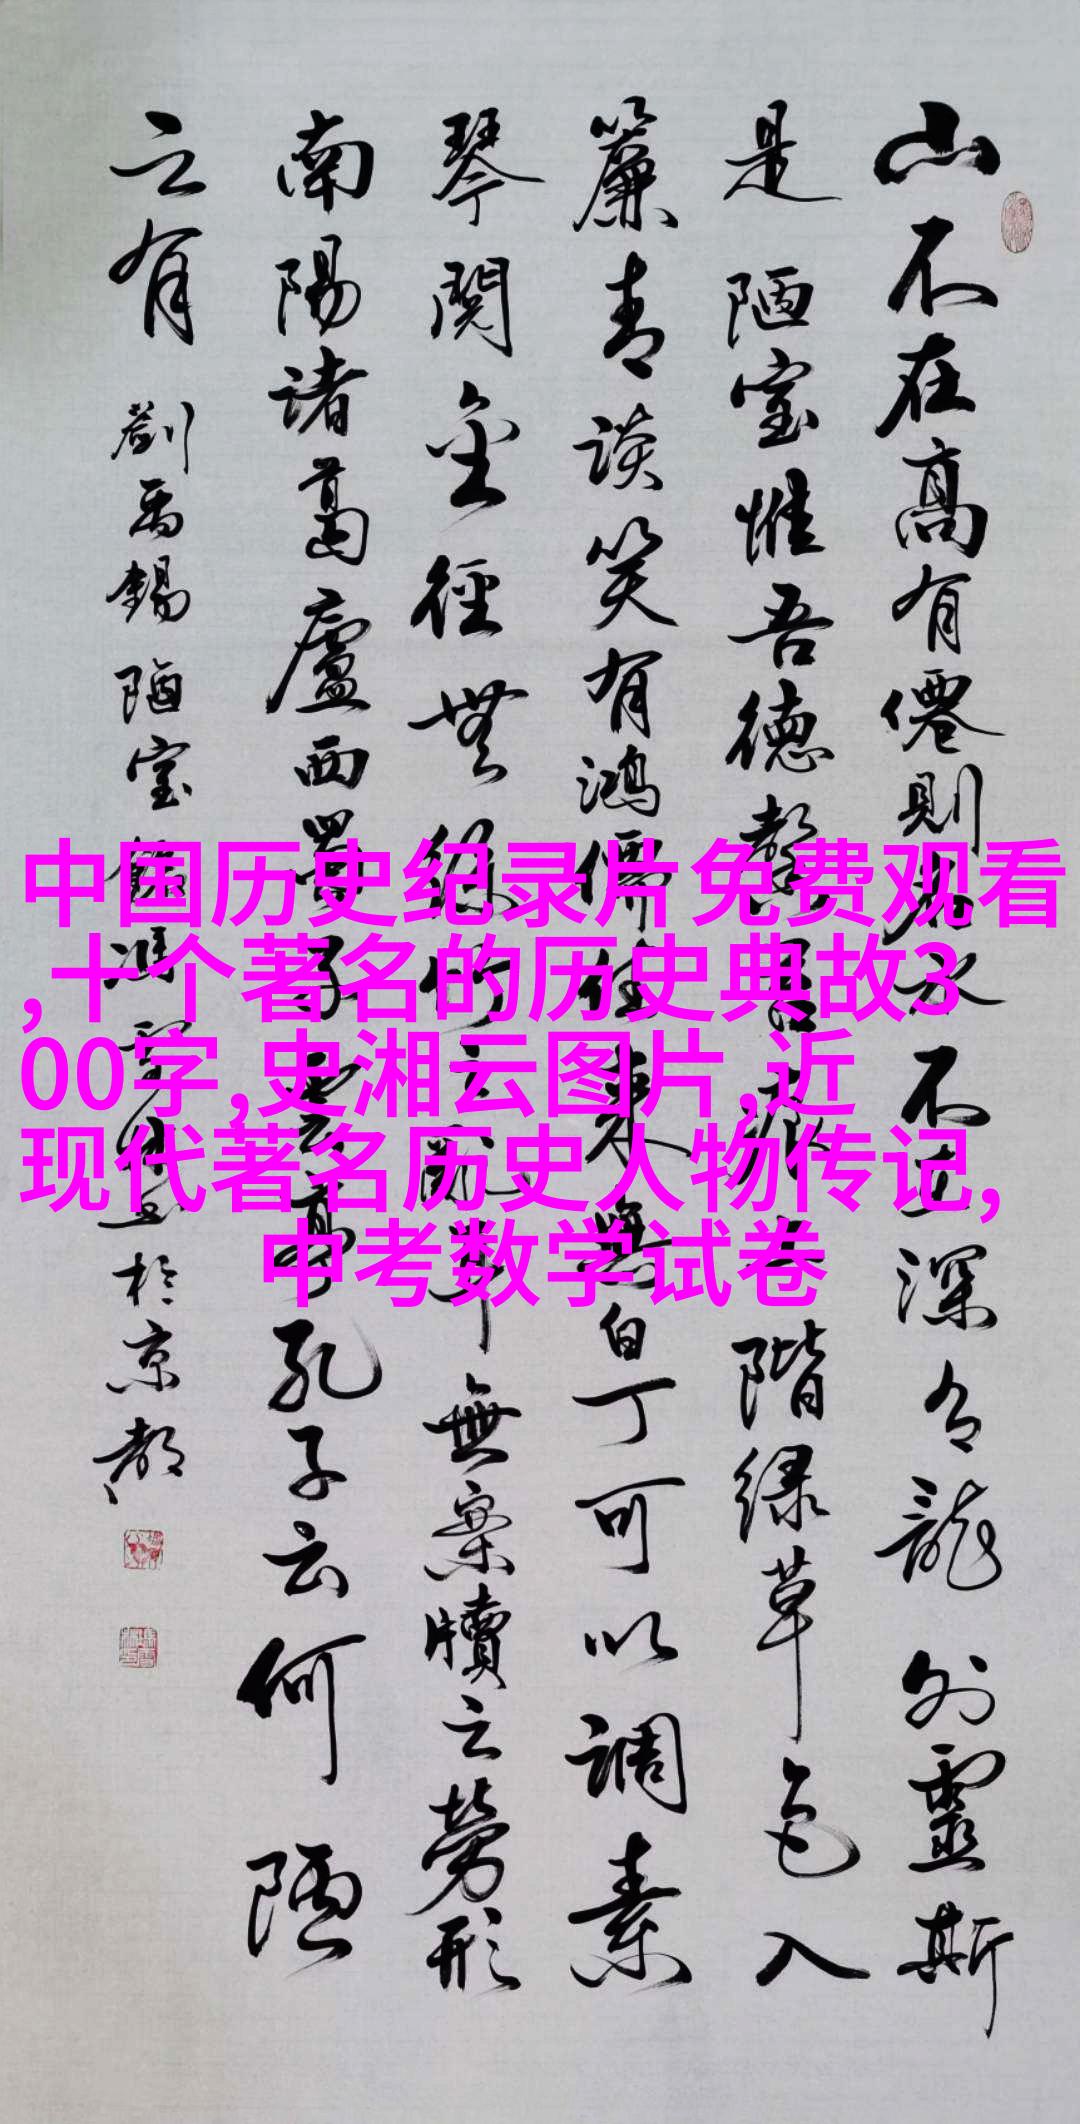 山不在高有僊則名水不在深有龍则靈斯
是陋室惟吾德馨苔痕上階绿草色入
簾青談笑有鴻儒往来無白丁可以調素
琴閱金徑無丝竹之亂耳無案牘之勞形
南陽诸葛廬西蜀子雲亭孔子云何陋
之有 劉禹錫陋室銘馮於京都
中国历史纪录片免费观看
,十个著名的历史典故3
00字,史湘云图片,近
现代著名历史人物传记,
中考数学试卷